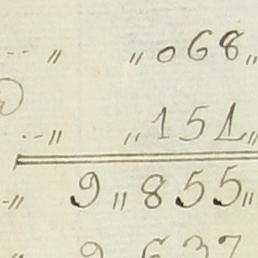 -- " "068"
-- " "151"
-" 9"855"
" 9 637